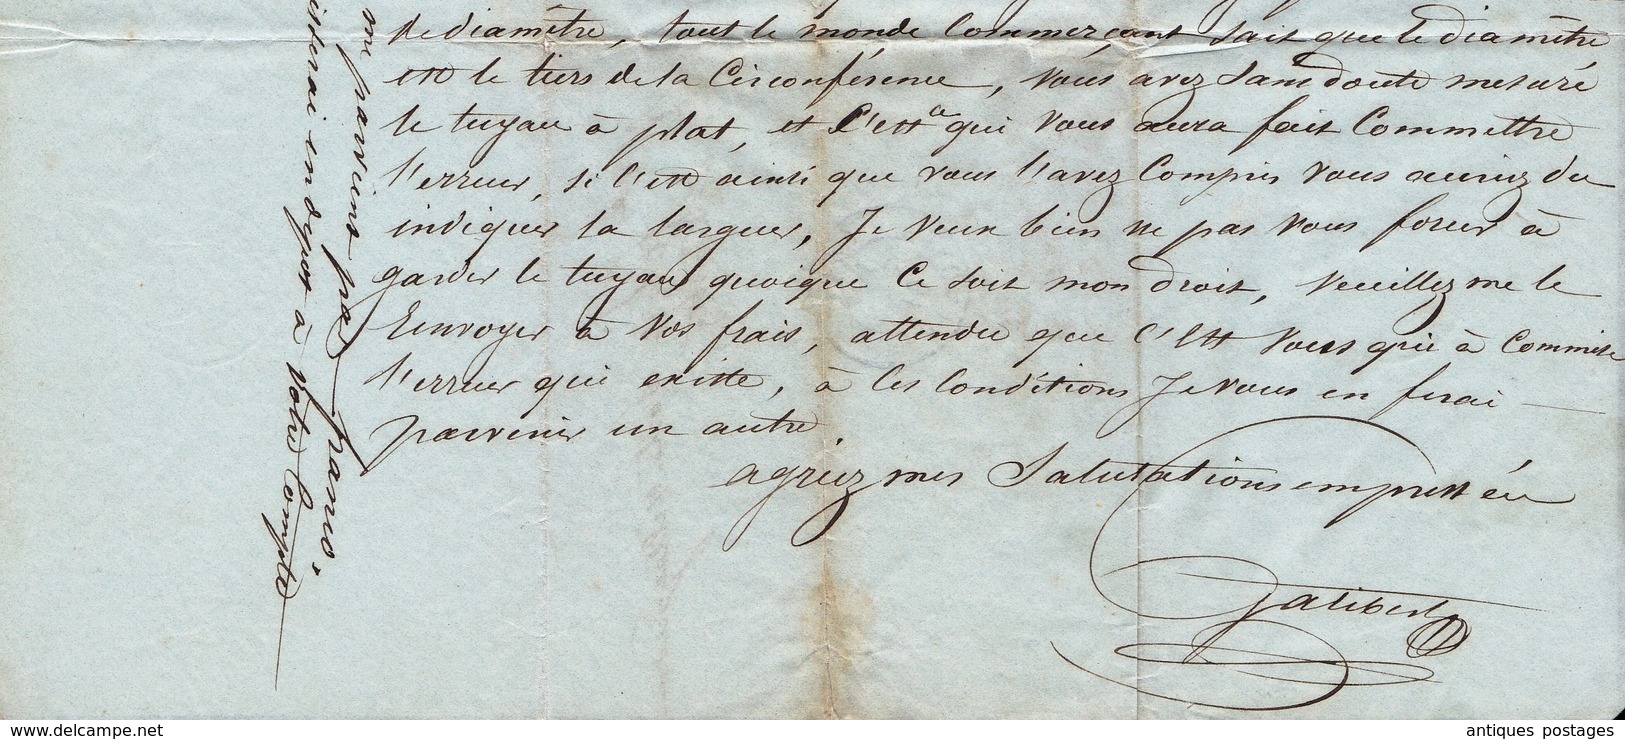 de diamêtre, tout le monde Commerçant sait que le diamêtre
est le tiers de la Circonférence, vous avez sans doute mesuré
le tuyau à plat, et C'est ce qui vous aura fait Commettre
l'erreur, si c'est ainsi que vous l'avez Compris vous auriez du
indiquer la largeur, Je veux bien ne pas vous forcer à
garder le tuyau quoique Ce soit mon droit, veuillez me le
Renvoyer à vos frais, attendu que C'est vous qui à Commise
l'erreur qui existe, à ces Conditions Je vous en ferai
parvenir un autre.
agréez mes Salutations empressées
Galibert
parvient pas franco,
à votre Compte
antiques postages